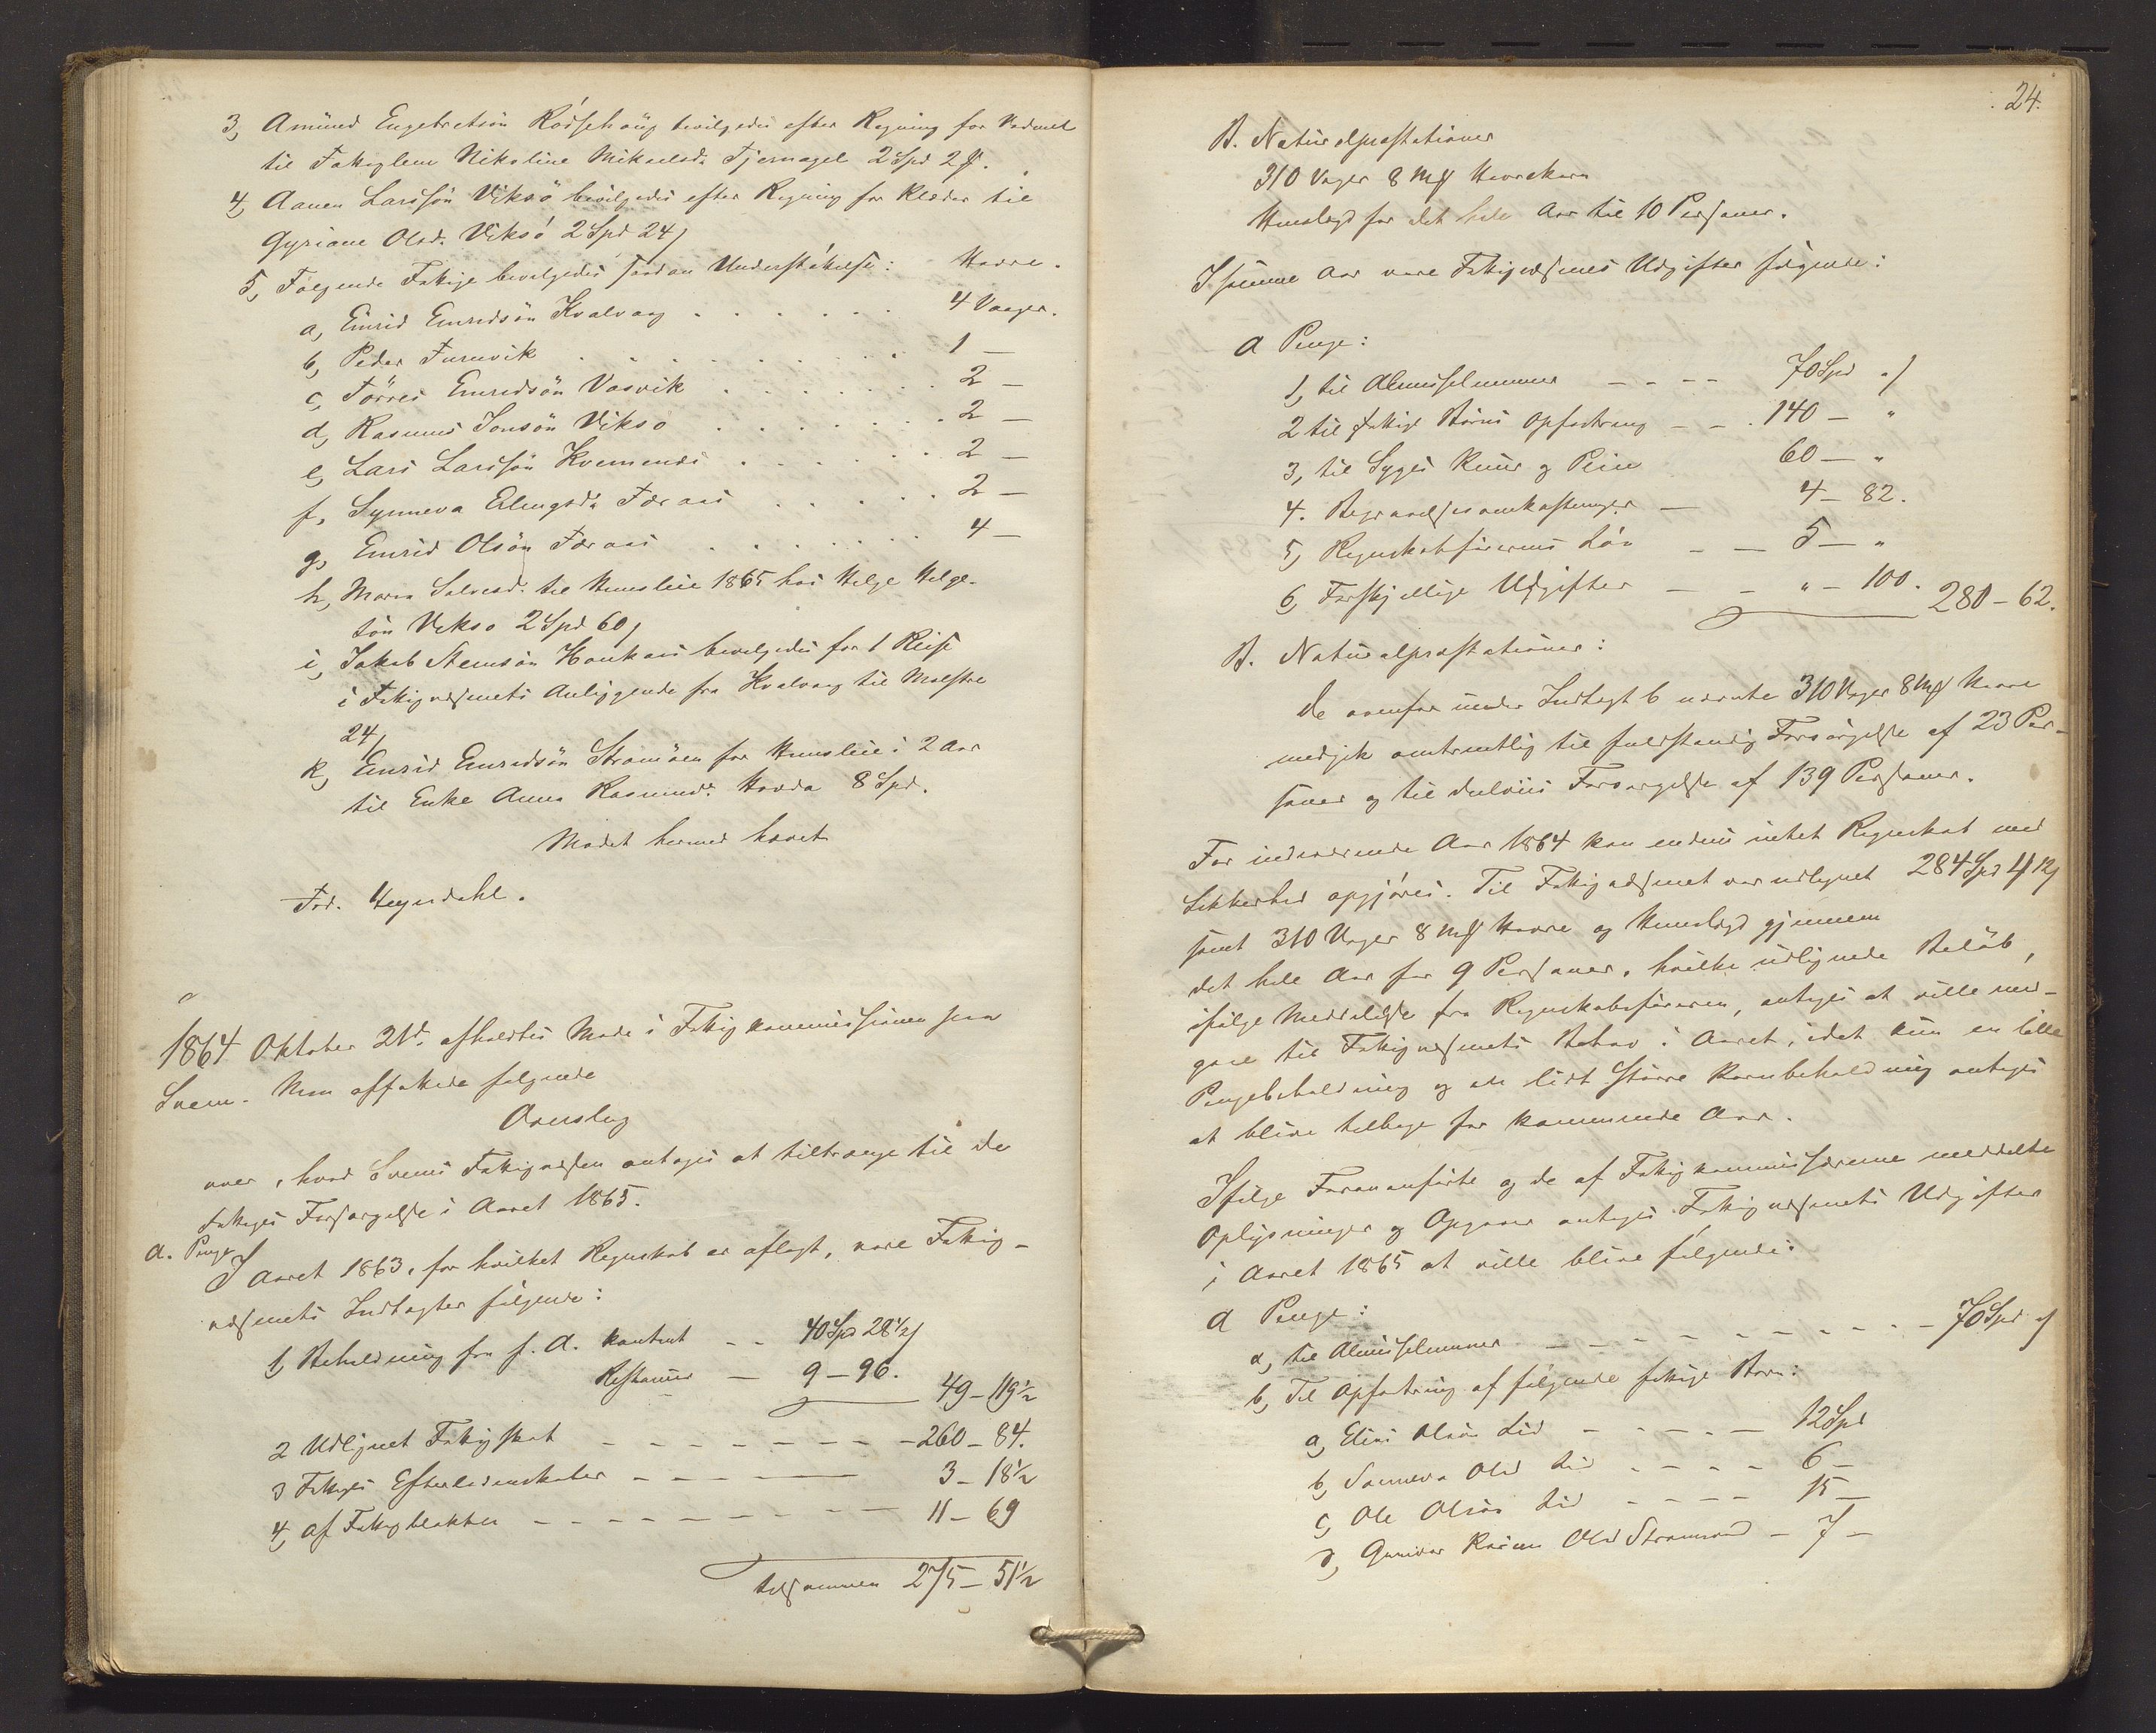 3, Amund Engebretsön Rödsehaug bevilgedes efter Regning for Vadmel
til Fakiglem Nikoline Mikaelsdr Tjernagel 2 Spd 2 β.
4, Aanen Larssön Viksö bevilgedes efter Regning for Klæder til
Gyriane Olsd. Viksö 2 Spd 24 β
5, Følgende Fakige bevilgedes saadan Understøttelse: Havre.
a, Emrid Emridsön Kvalvaag . . . . . . 4 Vaager.
b, Peder Furuvik . . . . . . . . . 1 —
c, Törres Emridsön Vasvik . . . . . . . 2 —
d, Rasmus Jonsön Viksö . . . . . . . . 2 —
e, Lars Larssön Kvemends . . . . . . 2 —
f, Synneva Erlingsdr Færaas . . . . . 2 —
g, Emrid Olsön Færaas . . . . . . . 4 —
h, Maria Salvesd. til Huusleie 1865 hos Helge Helge-
sön Viksø 2 Spd 60 β
i, Jakob Steensön Haukaas bevilgedes for 1 Reise
i Fakigvæsenets Anliggende fra Kvalvaag til Mølstre
24 β
k, Emrid Emridsön Strømøen for Huusleie i 2 Aar
til Enke Anna Rasmusdr Hovda 8 Spd.
Mødet hermed hævet
Fred. Heyerdahl.
1864 Oktober 21d. afholdtes Møde i Fakigkommissionen paa
Sveen. Man affattede følgende
Overslag
over, hvad Sveens Fakigvæsen antages at tiltrænge til de
Fakiges Forsørgelse i Aaret 1865.
A. Penge
I Aaret 1863, for hvilket Regnskab er aflagt, vare Fakig-
væsenets Indtægter følgende:
1, Beholdning fra f. A. kontant — — 40 Spd 28½ β
Restancer — 9 — 96.
49 — 119½
2 Udlignet Fakigskat — — — — — — — — 260 — 84.
3 Fakiges Efterladenskaber — — — — — 3 — 18½
4, af Fakigblokken — — — — — — — — 11 — 69
tilsammen 275 — 51½
24.
B. Naturalpræstationer
310 Vager 8 Mβ Havrekorn
Huuslægd for det hele Aar til 10 Personer.
I samme Aar vare Fakigvæsenets Udgifter følgende:
A Penge:
1, til Almisselemmer — — — — 70 Spd " β
2 til fakige Børns Opfostring — — . 140 — "
3, til Syges Kuur og Pleie 60 — "
4. Begravelsesomkostninger — 4 — 82.
5, Regnskabsførerens Løn — — 5 — "
6, Forskjellige Udgifter — — " — 100.
280 — 62.
B. Naturalpræstationer:
De ovenfor under Indtægt b nævnte 310 Vager 8 Mβ Havre
medgik omtrentlig til fuldstændig Forsørgelse af 23 Per-
soner og til deelviis Forsørgelse af 139 Personer.
For indeværende Aar 1864 kan endnu intet Regnskab med
Sikkerhed opgjøres. Til Fakigvæsenet var udlignet 284 Spd 4 β
samt 310 Vager 8 Mβ Havre og Huuslægd gjennem
det hele Aar for 9 Personer, hvilke udlignede Beløb,
ifølge Meddelelse fra Regnskabsføreren, antages at ville med-
gaae til Fakigvæsenets Behov i Aaret, idet kun en lille
Pengebeholdning og en lidt større Kornbeholdning antages
at blive tilbage for kommende Aar.
Ifølge Forananførte og de af Fakigkommissærerne meddelte
Oplysninger og Opgaver antages Fakigvæsenets Udgifter
i Aaret 1865 at ville blive følgende:
A Penge:
a, til Almisselemmer — — — — — — — — — 70 Spd " β
b, Til Opfostring af følgende fakige Børn:
a, Elias Olsön Lid — — — — — 12 Spd
b, Sønneva Olsd Lid — — — — 6 —
c, Ole Olsön Lid — — — — 15 —
d, Gunvor Karina Olsd Strømsund — 7 —